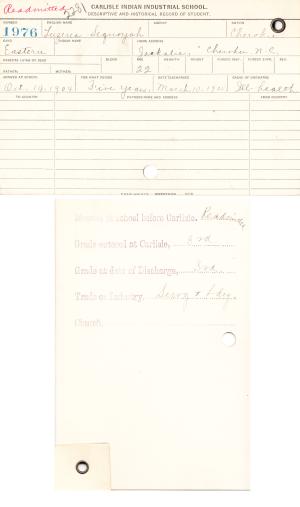 Readmitted
CARLISLE INDIAN INDUSTRIAL SCHOOL.
DESCRIPTIVE AND HISTORICAL RECORD OF STUDENT.
NUMBER ENGLISH NAME AGENCY NATION
1976 Sequoyah Cherokee
BAND INDIAN NAME HOME ADDRESS
Eastern Cherokee N.C.
PARENTS LIVING OR DEAD BLOOD AGE HEIGHT WEIGHT FORCED INSP. FORCED EXPR. SEX
FATHER MOTHER 22
ARRIVED AT SCHOOL FOR WHAT PERIOD DATE DISCHARGED CAUSE OF DISCHARGE
Oct. 19, 1904 Five years. March 10, Ill-health
TO COUNTRY PATRONS NAME AND ADDRESS FROM COUNTRY
Months in school before Carlisle,
Grade entered at Carlisle, 3rd
Grade at date of Discharge, 3rd
Trade or Industry,
Church,